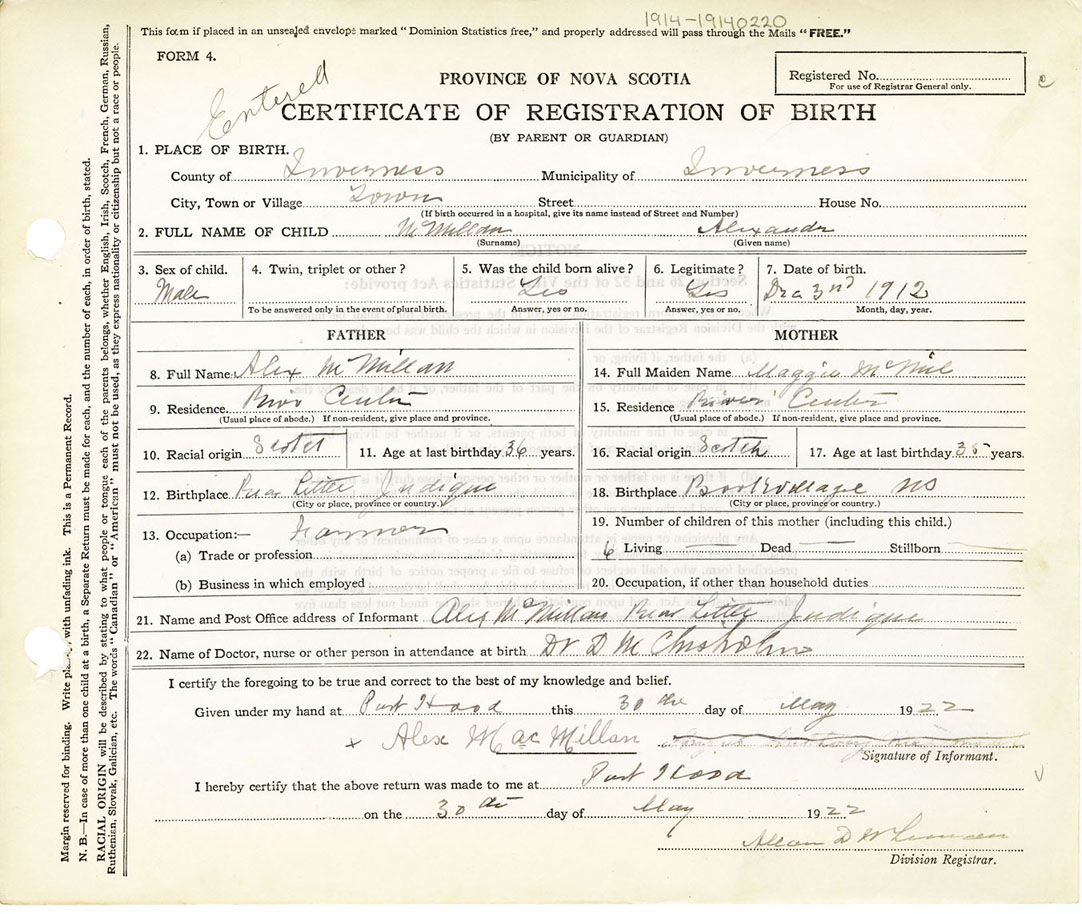 1914-19140220
This form if placed in an unsealed envelope marked "Dominion Statistics free," and properly addressed will pass through the Mails "FREE."
FORM 4.
Entered
PROVINCE OF NOVA SCOTIA
Registered No.
For use of Registrar General only.
CERTIFICATE OF REGISTRATION OF BIRTH
(BY PARENT OR GUARDIAN)
1. PLACE OF BIRTH.
County of Inverness Municipality of Inverness
City, Town or Village Town Street House No.
(If birth occurred in a hospital, give its name instead of Street and Number)
2. FULL NAME OF CHILD McMillan Alexander
(Surname) (Given name)
3. Sex of child. Male
4. Twin, triplet or other?
To be answered only in the event of plural birth.
5. Was the child born alive? Yes
Answer, yes or no.
6. Legitimate? Yes
Answer, yes or no.
7. Date of birth. 3rd 1912
Month, day, year.
FATHER
8. Full Name: Alex McMillan
9. Residence. Center
(Usual place of abode.) If non-resident, give place and province.
10. Racial origin 11. Age at last birthday 36 years.
12. Birthplace Little Judique
(City or place, province or country.)
13. Occupation:— Farmer
(a) Trade or profession
(b) Business in which employed
MOTHER
14. Full Maiden Name Maggie
15. Residence Center
(Usual place of abode.) If non-resident, give place and province.
16. Racial origin Scotch 17. Age at last birthday 35 years.
18. Birthplace NS
(City or place, province or country.)
19. Number of children of this mother (including this child.)
6 Living — Dead — Stillborn —
20. Occupation, if other than household duties
21. Name and Post Office address of Informant Alex McMillan Little Judique
22. Name of Doctor, nurse or other person in attendance at birth Dr D M Chisholm
I certify the foregoing to be true and correct to the best of my knowledge and belief.
Given under my hand at Port Hood this 30th day of May 1922
x Alex MacMillan
Signature of Informant.
I hereby certify that the above return was made to me at Port Hood
on the 30th day of May 1922
Allan D
Division Registrar.
Margin reserved for binding. Write plainly with unfading ink. This is a Permanent Record.
N. B.—In case of more than one child at a birth, a Separate Return must be made for each, and the number of each, in order of birth, stated.
RACIAL ORIGIN will be described by stating to what people or tongue each of the parents belongs, whether English, Irish, Scotch, French, German, Russian,
Ruthenian, Slovak, Galician, etc. The words "Canadian" or "American" must not be used, as they express nationality or citizenship but not a race or people.